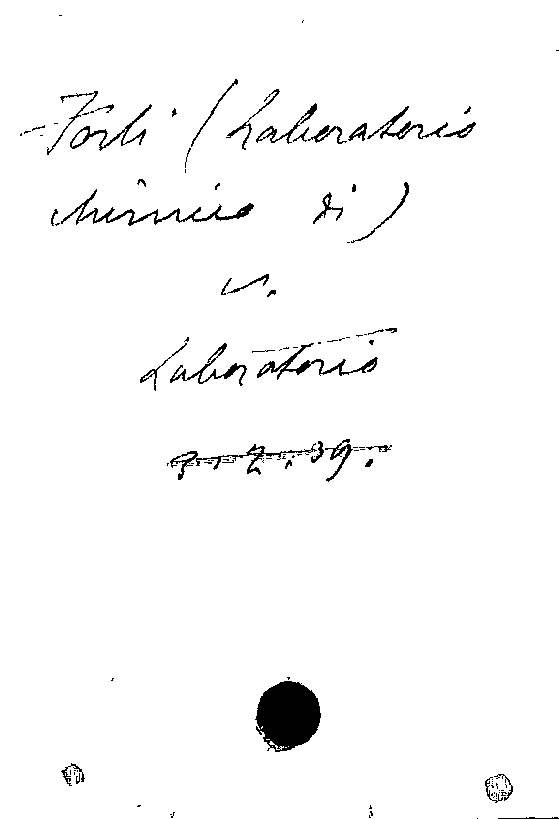 Forlì (Laboratorio
chimico di)
v.
Laboratorio
3.Z.39.